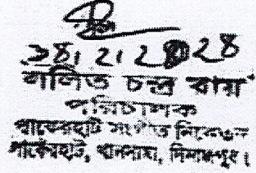 28/2/2028
ললিত চন্দ্র রায়
পরিচালক
পাকেরহাট সংগীত নিকেতন
পাকেরহাট, খানসামা, দিনাজপুর।